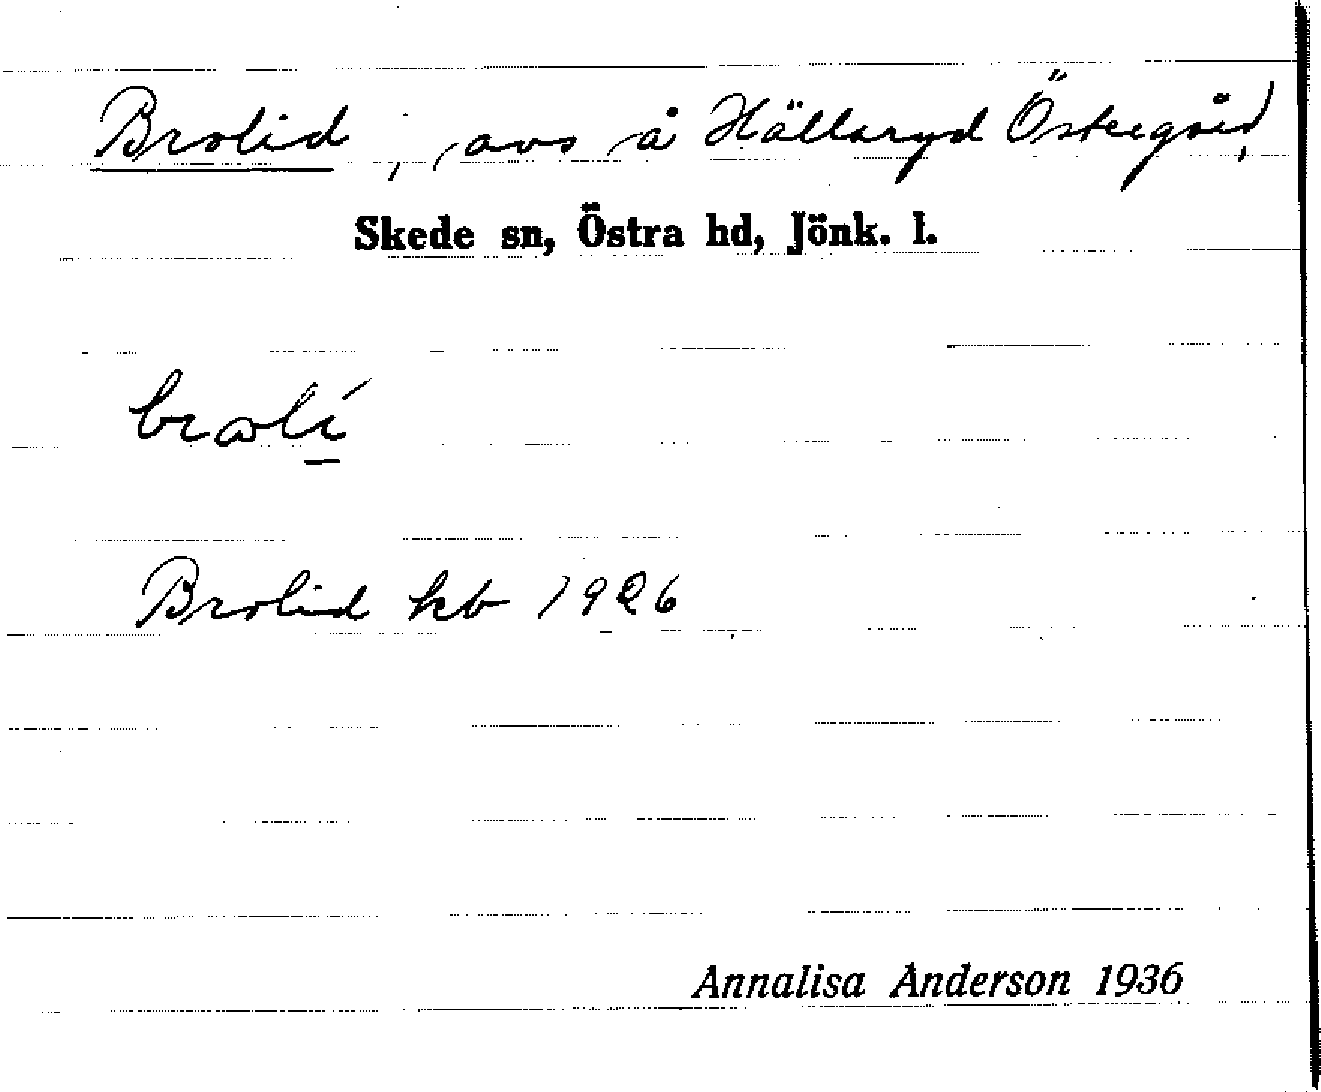 Brolid, avs å Hällaryd Östergård,
Skede sn, Östra hd, Jönk. l.
broli´
Brolid kb 1926
Annalisa Anderson 1936